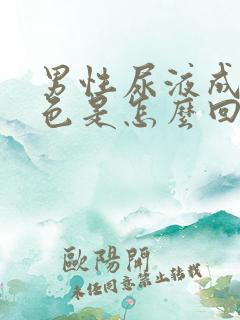 男性尿液成
色是怎麼回
歐陽開
未经同意禁止转载